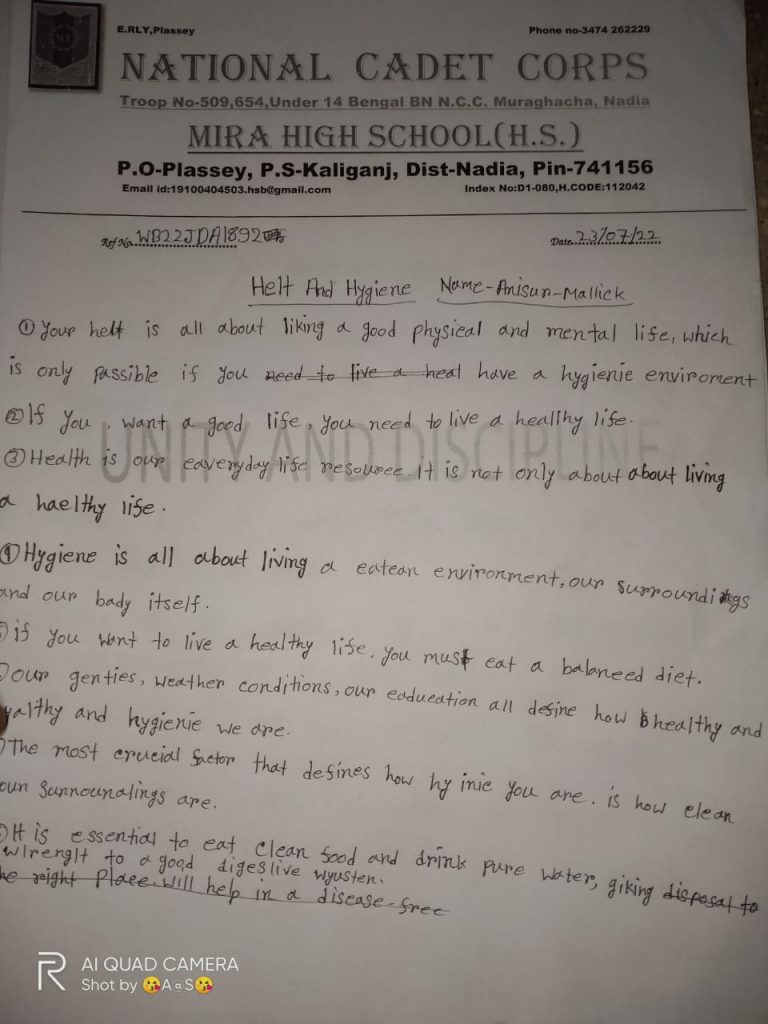 E.RLY,Plassey Phone no-3474 262229
NATIONAL CADET CORPS
Troop No-509,654,Under 14 Bengal BN N.C.C. Muraghacha, Nadia
MIRA HIGH SCHOOL(H.S.)
P.O-Plassey, P.S-Kaliganj, Dist-Nadia, Pin-741156
Email id:19100404503.hsb@gmail.com Index No:D1-080,H.CODE:112042
Ref No. WB22JDA1892 Date 23/07/22
Helt And Hygiene Name-Anisur-Mallick
① Your helt is all about liking a good physical and mental life, which
is only passible if you need to live a heal have a hygienie enviroment
② If You, want a good life, you need to live a healhy life.
UNITY AND DISCIPLINE
③ Health is our eaveryday life resouree. it is not only about about living
a haelthy life.
④ Hygiene is all about living a eatean environment, our surroundings
and our bady itself.
if you want to live a healthy life. you must eat a balaneed diet.
our genties, weather conditions, our eadueation all desine how healthy and
yalthy and hygienie we are.
The most crucial factor that defines how hy inie you are. is how elean
our sunnounalings are.
It is essential to eat clean food and drink pure water, giking disposal to
wlrenglt to a good digeslive wyusten.
he right Place will help in a disease-free
AI QUAD CAMERA
Shot by 😘AaS😘